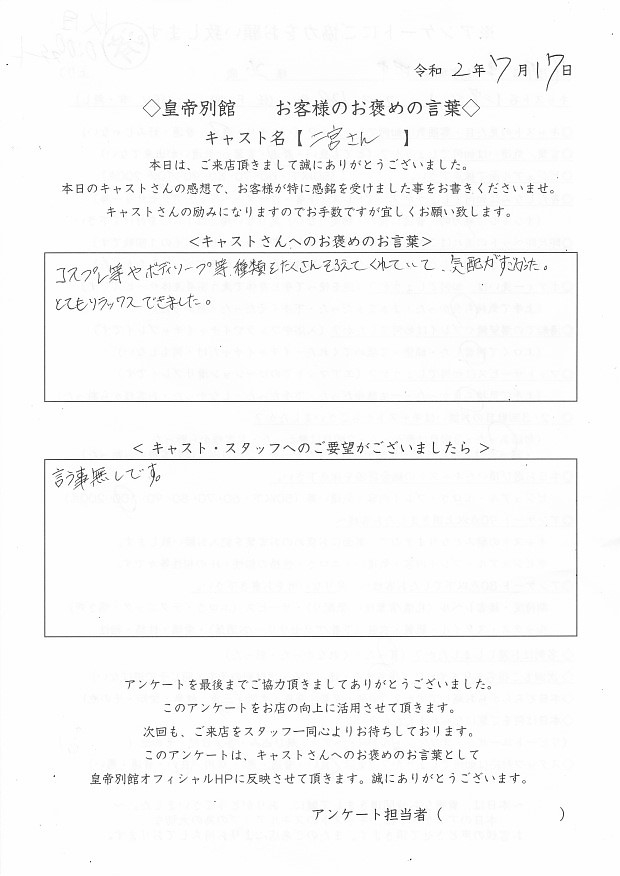 令和 2年 7月17日
◇皇帝別館 お客様のお褒めの言葉◇
キャスト名【 二宮さん 】
本日は、ご来店頂きまして誠にありがとうございました。
本日のキャストさんの感想で、お客様が特に感銘を受けました事をお書きくださいませ。
キャストさんの励みになりますのでお手数ですが宜しくお願い致します。
<キャストさんへのお褒めのお言葉>
コスプレ等やボディソープ等種類をたくさんそろえてくれていて、気配がすごかった。
とてもリラックスできました。
< キャスト・スタッフへのご要望がございましたら >
言う事無しです。
アンケートを最後までご協力頂きましてありがとうございました。
このアンケートをお店の向上に活用させて頂きます。
次回も、ご来店をスタッフ一同心よりお待ちしております。
このアンケートは、キャストさんへのお褒めのお言葉として
皇帝別館オフィシャルHPに反映させて頂きます。誠にありがとうございます。
アンケート担当者（ ）